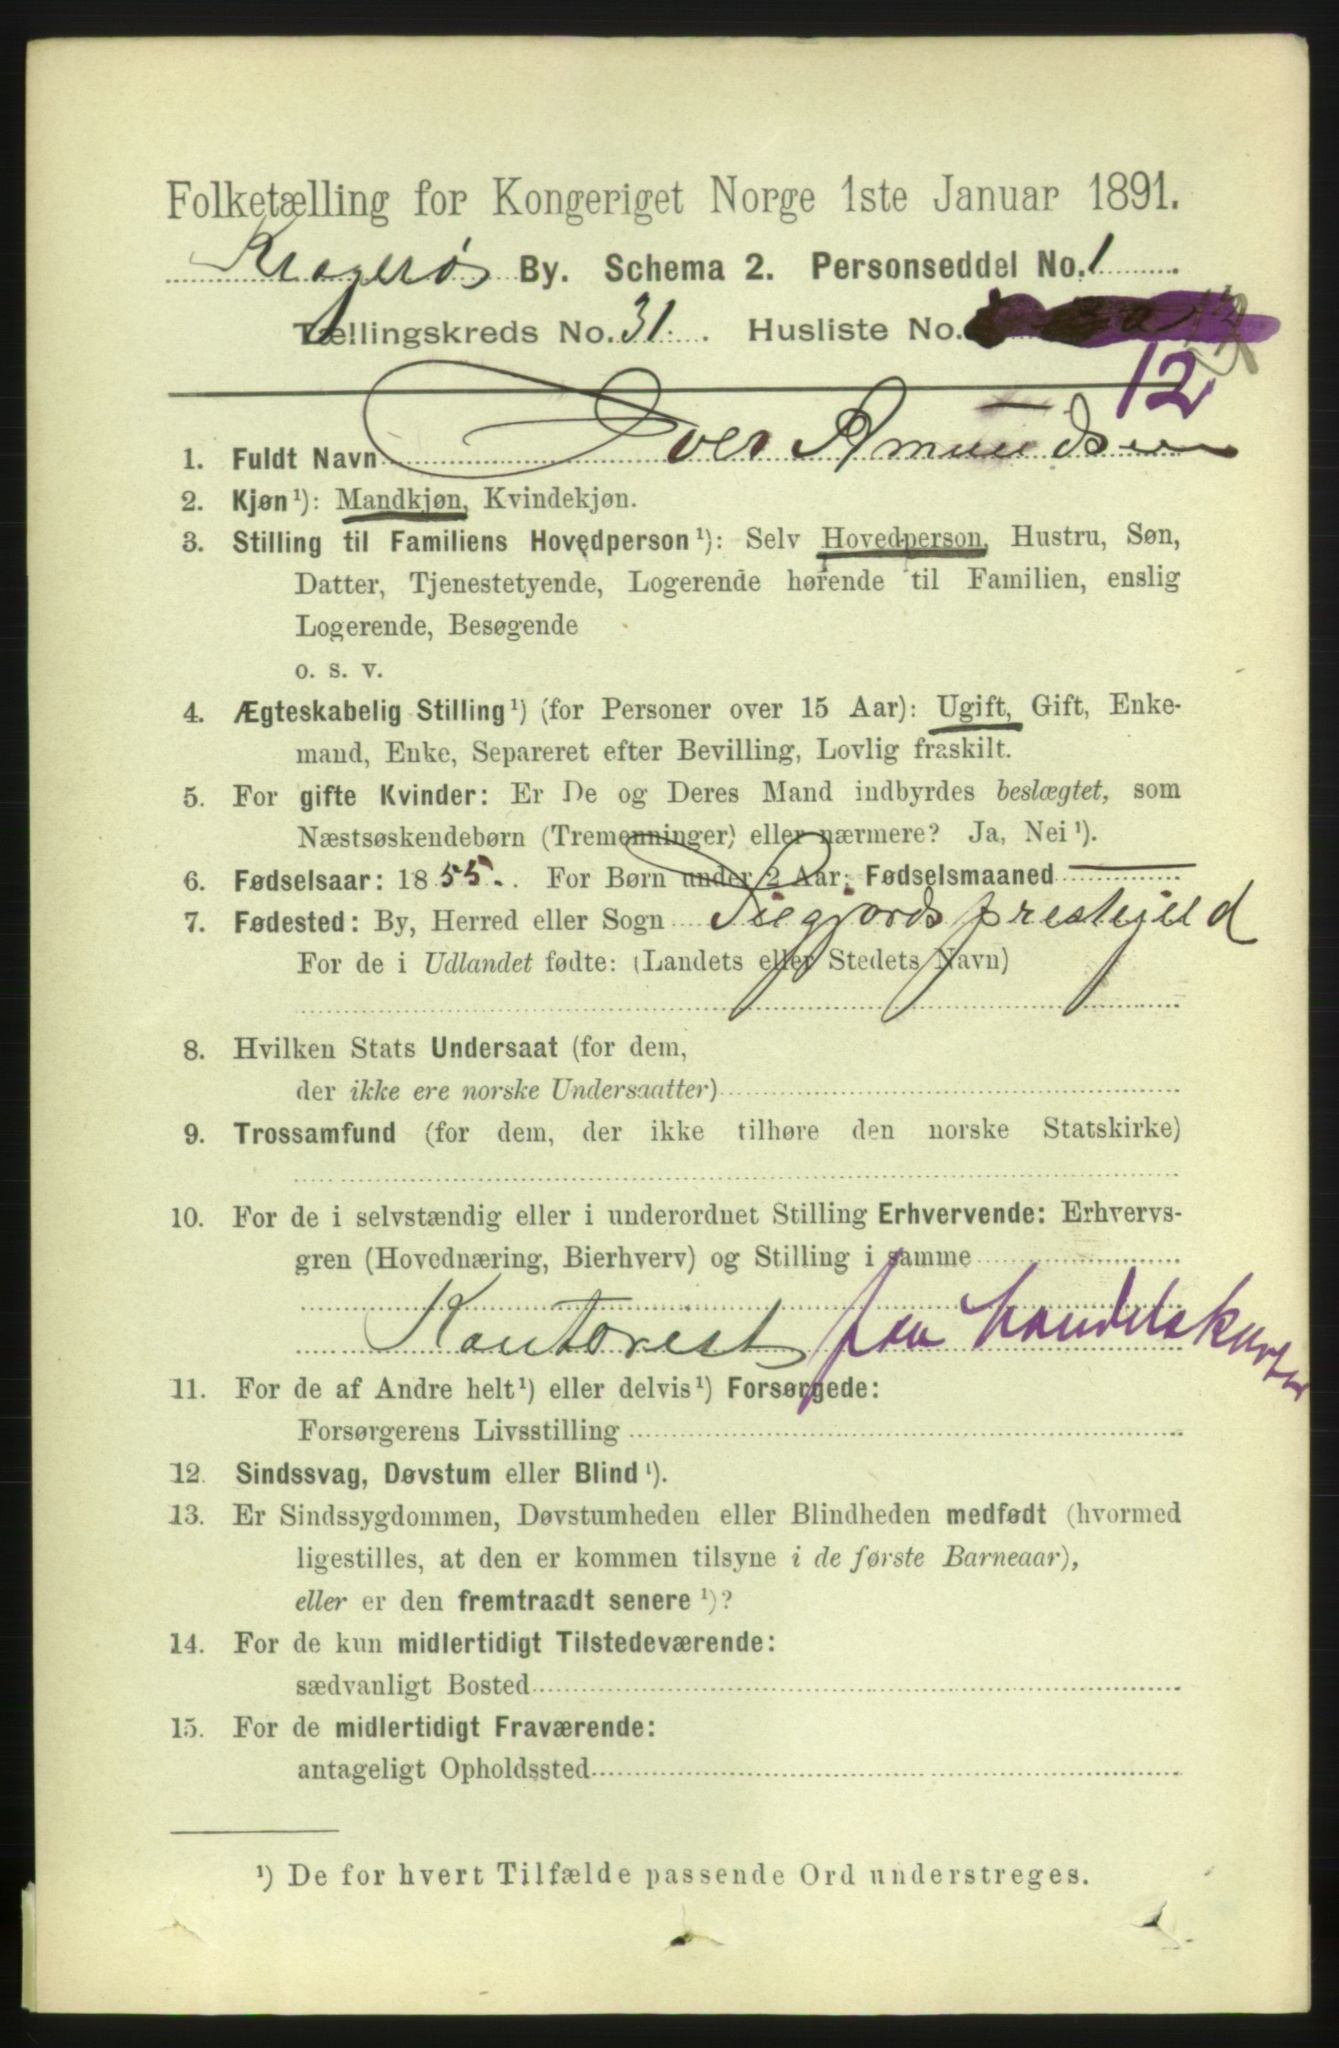 Folketælling for Kongeriget Norge 1ste Januar 1891.
Kragerø By. Schema 2. Personseddel No. 1
Tællingskreds No. 31. Husliste No.
12
1. Fuldt Navn Iver Amundsen
2. Kjøn¹): Mandkjøn, Kvindekjøn.
3. Stilling til Familiens Hovedperson¹): Selv Hovedperson, Hustru, Søn,
Datter, Tjenestetyende, Logerende hørende til Familien, enslig
Logerende, Besøgende
o. s. v.
4. Ægteskabelig Stilling¹) (for Personer over 15 Aar): Ugift, Gift, Enke-
mand, Enke, Separeret efter Bevilling, Lovlig fraskilt.
5. For gifte Kvinder: Er De og Deres Mand indbyrdes beslægtet, som
Næstsøskendebørn (Tremenninger) eller nærmere? Ja, Nei¹).
6. Fødselsaar: 1855. For Børn under 2 Aar: Fødselsmaaned
7. Fødested: By, Herred eller Sogn prestejeld
For de i Udlandet fødte: (Landets eller Stedets Navn)
8. Hvilken Stats Undersaat (for dem,
der ikke ere norske Undersaatter)
9. Trossamfund (for dem, der ikke tilhøre den norske Statskirke)
10. For de i selvstændig eller i underordnet Stilling Erhvervende: Erhvervs-
gren (Hovednæring, Bierhverv) og Stilling i samme
Kontorist paa handelskontor
11. For de af Andre helt¹) eller delvis¹) Forsørgede:
Forsørgerens Livsstilling
12. Sindssvag, Døvstum eller Blind¹).
13. Er Sindssygdommen, Døvstumheden eller Blindheden medfødt (hvormed
ligestilles, at den er kommen tilsyne i de første Barneaar),
eller er den fremtraadt senere¹)?
14. For de kun midlertidigt Tilstedeværende:
sædvanligt Bosted
15. For de midlertidigt Fraværende:
antageligt Opholdssted
¹) De for hvert Tilfælde passende Ord understreges.